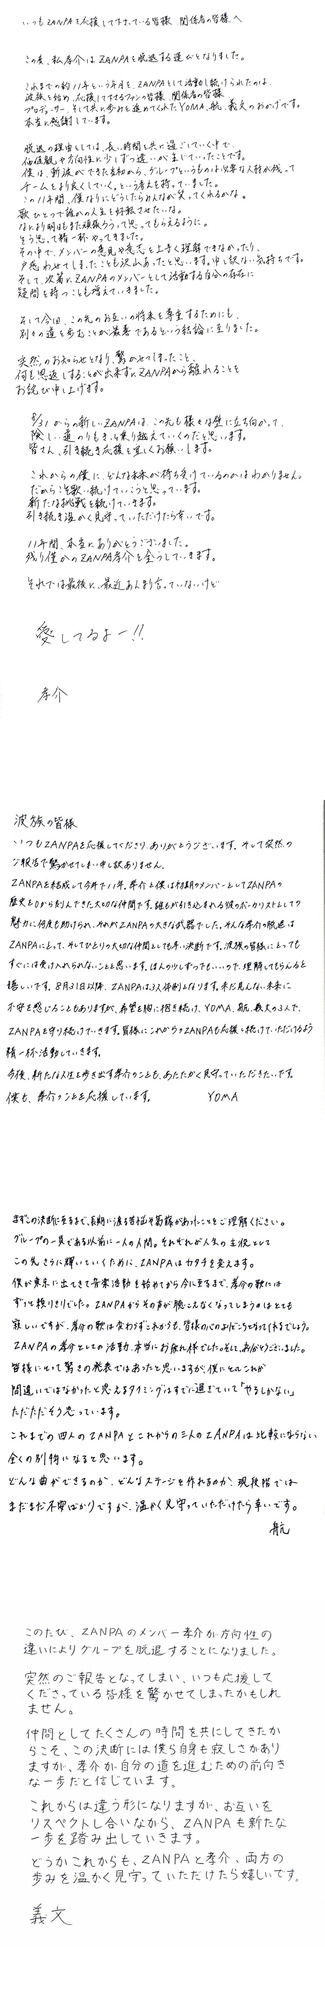 いつもZANPAを応援して下さっている皆様、関係者の皆様へ
この度、私孝介はZANPAを脱退する運びとなりました。
これまでの約11年という年月を、ZANPAとして活動し続けられたのは、
波族を始め、応援して下さるファンの皆様、関係者の皆様、
プロデューサー、そして共に歩みを進めてくれたYOMA、航、義文のおかげです。
本当に感謝しています。
脱退の理由としては、長い時間を共に過ごしていく中で、
価値観や方向性に少しずつ違いが生じていったことです。
僕は、新波ができた当初から、グループというものは必要な人材が残って
チームをより良くしていく。という考えを持っていました。
この11年間、僕なりにどうしたらみんなが笑ってくれるかな。
歌ひとつで誰かの人生を好転させたいな。
なにより明日もまた頑張ろうって思ってもらえるように。
そう思って精一杯やってきました。
その中で、メンバーの意見や意志を上手く理解できなかったり、
戸惑わせてしまったことも沢山あったと思います。申し訳ない気持ちです。
そして、次第にZANPAのメンバーとして活動する自分の存在に
疑問を持つことも増えていきました。
そして今回、この先のお互いの将来を尊重するためにも、
別々の道を歩むことが最善であるという結論に至りました。
突然のお知らせとなり、驚かせてしまったこと、
何も恩返しすることが出来ずにZANPAから離れることを
お詫び申し上げます。
8/31からの新しいZANPAは、この先も様々な壁に立ち向かって、
険しい道のりもきっと乗り越えていくのだと思います。
皆さん、引き続き応援を宜しくお願いします。
これからの僕に、どんな未来が待ち受けているのかはわかりません。
だからこそ歌い続けていこうと思っています。
新たな挑戦を続けていきます。
引き続き温かく見守っていただけたら幸いです。
11年間、本当にありがとうございました。
残り僅かのZANPA孝介を全うしていきます。
それでは最後に、最近あんまり言っていないけど
愛してるよー!!
孝介
波族の皆様
いつもZANPAを応援してくださり、ありがとうございます。そして突然の
ご報告で驚かせてしまい申し訳ありません。
ZANPAを結成して今年で11年。孝介と僕は初期のメンバーとしてZANPAの
歴史を0から刻んできた大切な仲間です。誰もが引き込まれる彼のボーカリストとしての
魅力に何度も助けられ、それがZANPAの大きな武器でした。そんな孝介の脱退は
ZANPAにとって、そしてひとりの大切な仲間としても辛い決断です。波族の皆様にとっても
すぐには受け入れられないことと思います。ほんの少しずつでもいいので、理解してもらえると
嬉しいです。8月31日以降、ZANPAは3人体制となります。まだ見えない未来に
不安を感じることもありますが、希望を胸に抱き続け、YOMA、航、義文の3人で、
ZANPAを守り続けていきます。皆様にこれからのZANPAも応援し続けていただけるよう
精一杯活動していきます。
今後、新たな人生を歩き出す孝介のことも、あたたかく見守っていただきたいです。
僕も、孝介のことを応援しています。 YOMA
まずこの決断に至るまで、長期に渡る苦悩や葛藤があったことをご理解ください。
グループの一員である以前に一人の人間。それぞれが人生の主役として
この先さらに輝いていくために、ZANPAはカタチを変えます。
僕が東京に出てきて音楽活動を始めてから今に至るまで、孝介の歌には
ずっと頼りきりでした。ZANPAからその声が聴こえなくなってしまうのはとても
寂しいですが、孝介の歌は変わらずこれからも、皆様の心のよりどころとなってくれるでしょう。
ZANPAの孝介としての活動、本当にお疲れ様でした。そして、ありがとうございました。
皆様にとって驚きの発表ではあったと思いますが、僕にとってこれが
間違いではなかったと思えるタイミングはすでに過ぎていて「やるしかない」
ただただそう思っています。
これまでの四人のZANPAとこれからの三人のZANPAは比較にならない
全くの別物になると思います。
どんな曲ができるのか、どんなステージを作れるのか、現段階では
まだまだ不安ばかりですが、温かく見守っていただけたら幸いです。
航
このたび、ZANPAのメンバー孝介が方向性の
違いによりグループを脱退することになりました。
突然のご報告となってしまい、いつも応援して
くださっている皆様を驚かせてしまったかもしれ
ません。
仲間としてたくさんの時間を共にしてきたか
らこそ、この決断には僕ら自身も寂しさがあり
ますが、孝介が自分の道を進むための前向き
な一歩だと信じています。
これからは違う形になりますが、お互いを
リスペクトし合いながら、ZANPAも新たな
一歩を踏み出していきます。
どうかこれからも、ZANPAと孝介、両方の
歩みを温かく見守っていただけたら嬉しいです。
義文